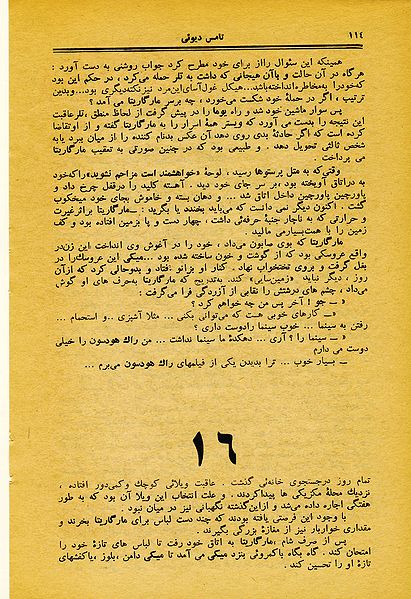 ۱۱٤
تامس دیوئی
همینکه این سئوال رااز برای خود مطرح کرد جواب روشنی به دست آورد :
هرگاه در آن حالت و باآن هیجانی که داشت به تلر حمله می‌کرد ، در حکم این بود
که‌خودرا به‌مخاطره‌انداخته‌باشد...هیکل غول‌آسای‌این‌مرد نیزنکته‌دیگری بود...وبدین
ترتیب ، اگر در حمله‌ٔ خود شکست می‌خورد ، چه برسر مارگاریتا می آمد ؟
پس سوار ماشین خود شد و راه یوما را در پیش گرفت از لحاظ منطق ،تلرعاقبت
این نتیجه را بدست می آورد که ویستر همهٔ اسرار را به مارگاریتا گفته و از اوتقاضا
کرده است که اگر حادثهٔ بدی روی دهد آن عکس بدنام کننده را از میان ببرد یابه
شخص ثالثی تحویل دهد . و طبیعی بود که در چنین صورتی به تعقیب مارگاریتا
می پرداخت .
وقتی‌که به متل پرستوها رسید ، لوحهٔ «خواهشمند است مزاحم نشوید» راکه‌خود
به دراتاق آویخته بود ،بر سر جای خود دید . آهسته کلید را درقفل چرخ داد و
پاورچین پاورچین داخل اتاق شد ... و دهان بسته و خاموش بجای خود میخکوب
گشت . اکنون دیگر نمی دانست که می‌باید بخندد یا بگرید : ــ مارگاریتا براثرغیرت
و حرارتی که به ناچار جنبهٔ حرفه‌ئی داشت ، چهار دست و پا بزمین افتاده بود و کف
زمین را با همت‌بسیارمی مالید .
مارگاریتا که بوی صابون می‌داد ، خود را در آغوش وی انداخت این زن‌در
واقع عروسکی بود که از گوشت و خون ساخته شده بود ...میکی این عروسک‌را در
بغل گرفت و بروی تختخواب نهاد . کنار او بزانو افتاد و بدوحالی کرد که ازآن
روز ، دیگر نباید «زمین‌سابی» کند. به‌تدریج که مارگاریتا به‌حرف های او گوش
می‌داد ، چشم های درشتش را نقابی از آزردگی فرا می‌گرفت :
« ــ جو ! آخر پس من چه خواهم کرد ؟
« ــ کارهای خوبی هست که می‌توانی بکنی ... مثلا آشپزی ..و استحمام ...
رفتن به سینما ... خوب سینما رادوست داری ؟
« ــ سینما را ؟ آری ... دهکدهٔ ما سینما نداشت ... من راك هودسون را خیلی
دوست می دارم
ــ بسیار خوب ... ترا بدیدن یکی از فیلمهای راك هودسون می‌برم ...
۱٦
تمام روز درجستجوی خانه‌ئی گذشت . عاقبت ویلائی کوچك وکمی‌دور افتاده ،
نزدیك محلهٔ مکزیکی ها پیداکردند . و علت انتخاب این ویلا آن بود که به طور
هفتگی اجاره داده می‌شد و ازاین‌گذشته نگهبانی نیز در میان نبود .
با وجود این فرصتی یافته بودند که چند دست لباس برای مارگاریتا بخرند و
مقداری خواربار نیز از مغازهٔ بزرگی بگیرند .
پس از صرف شام ،مارگاریتا به اتاق خود رفت تا لباس های تازهٔ خود را
امتحان کند . گاه بگاه باکمروئی بنزد میکی می آمد تا میکی دامن ،بلوز ،یاکفشهای
تازهٔ او را تحسین کند .